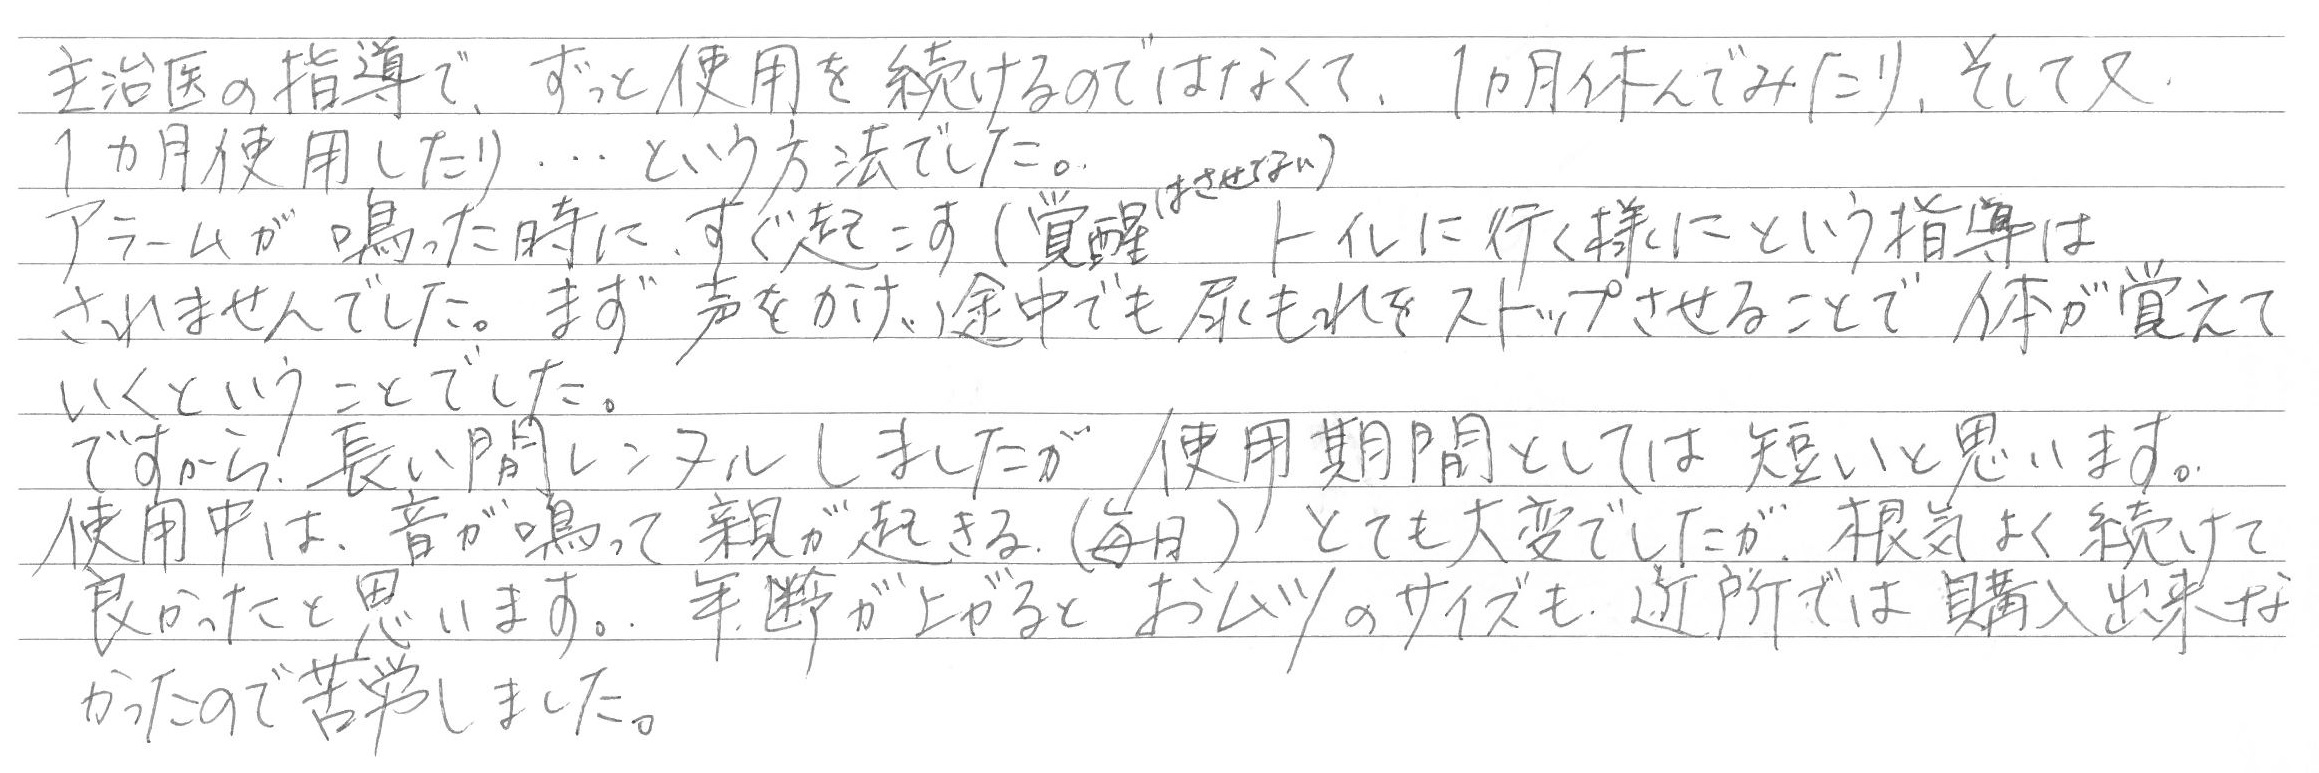 主治医の指導で、ずっと使用を続けるのではなくて、1ヵ月休んでみたり、そして又
1ヵ月使用したり…という方法でした。
アラームが鳴った時に、すぐ起こす(覚醒はさせてない)トイレに行く様にという指導は
されませんでした。まず声をかけ、途中でも尿もれをストップさせることで体が覚えて
いくということでした。
ですから、長い間レンタルしましたが使用期間としては短いと思います。
使用中は、音が鳴って親が起きる、(毎日)とても大変でしたが、根気よく続けて
良かったと思います。年齢が上がるとおムツのサイズも近所では購入出来な
かったので苦労しました。